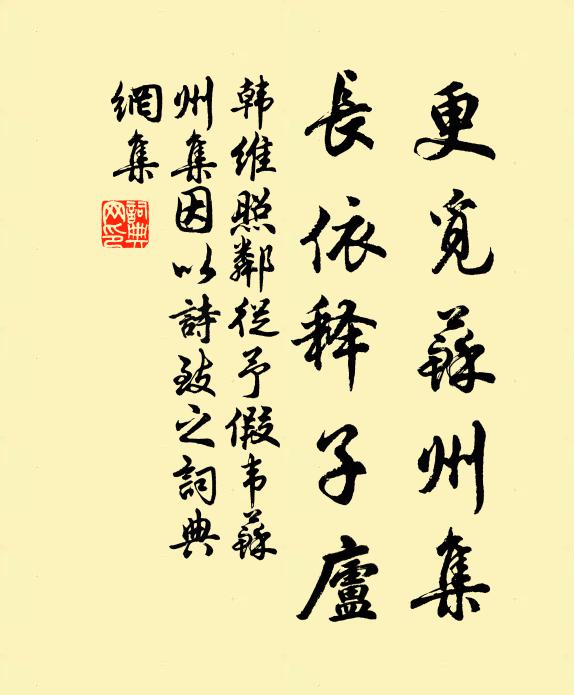 更覓蘇州集
長依释子廬
韩維照鄰從予假韦蘇
州集因以詩致之詞典
網集
詞典網印